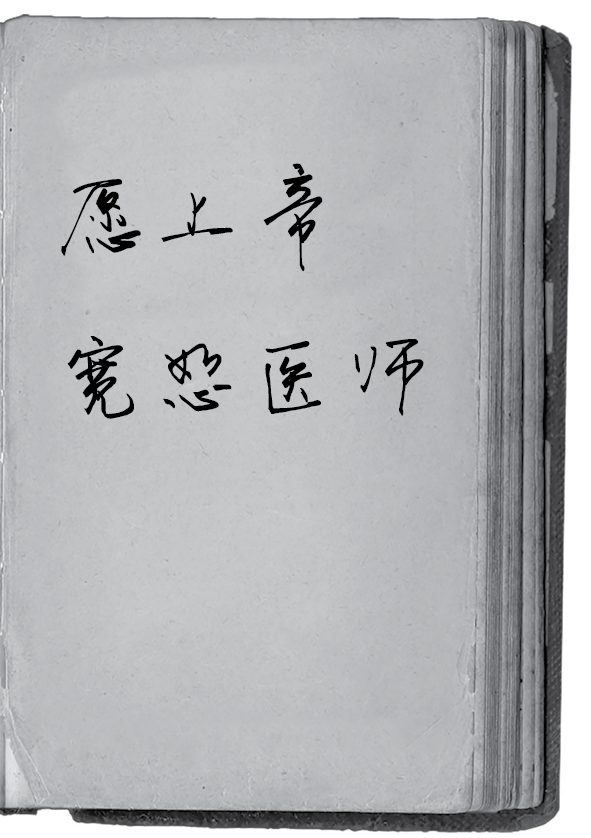 愿上帝
宽恕医师